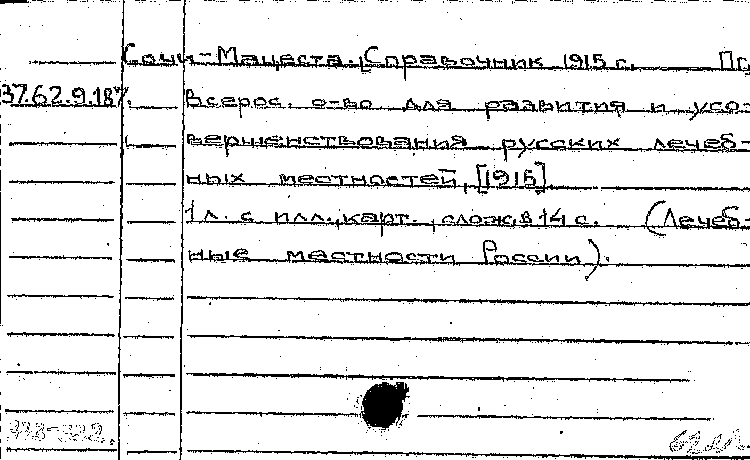 Сочи-Мацеста. [Справочник 1915 г. Пг,
37.62.9.187. Всерос. о-во для развития и усо-
вершенствования русских лечеб-
ных местностей, [1915].
1 л. с илл., карт., слож. в 14 с. (Лечеб-
ные местности России).